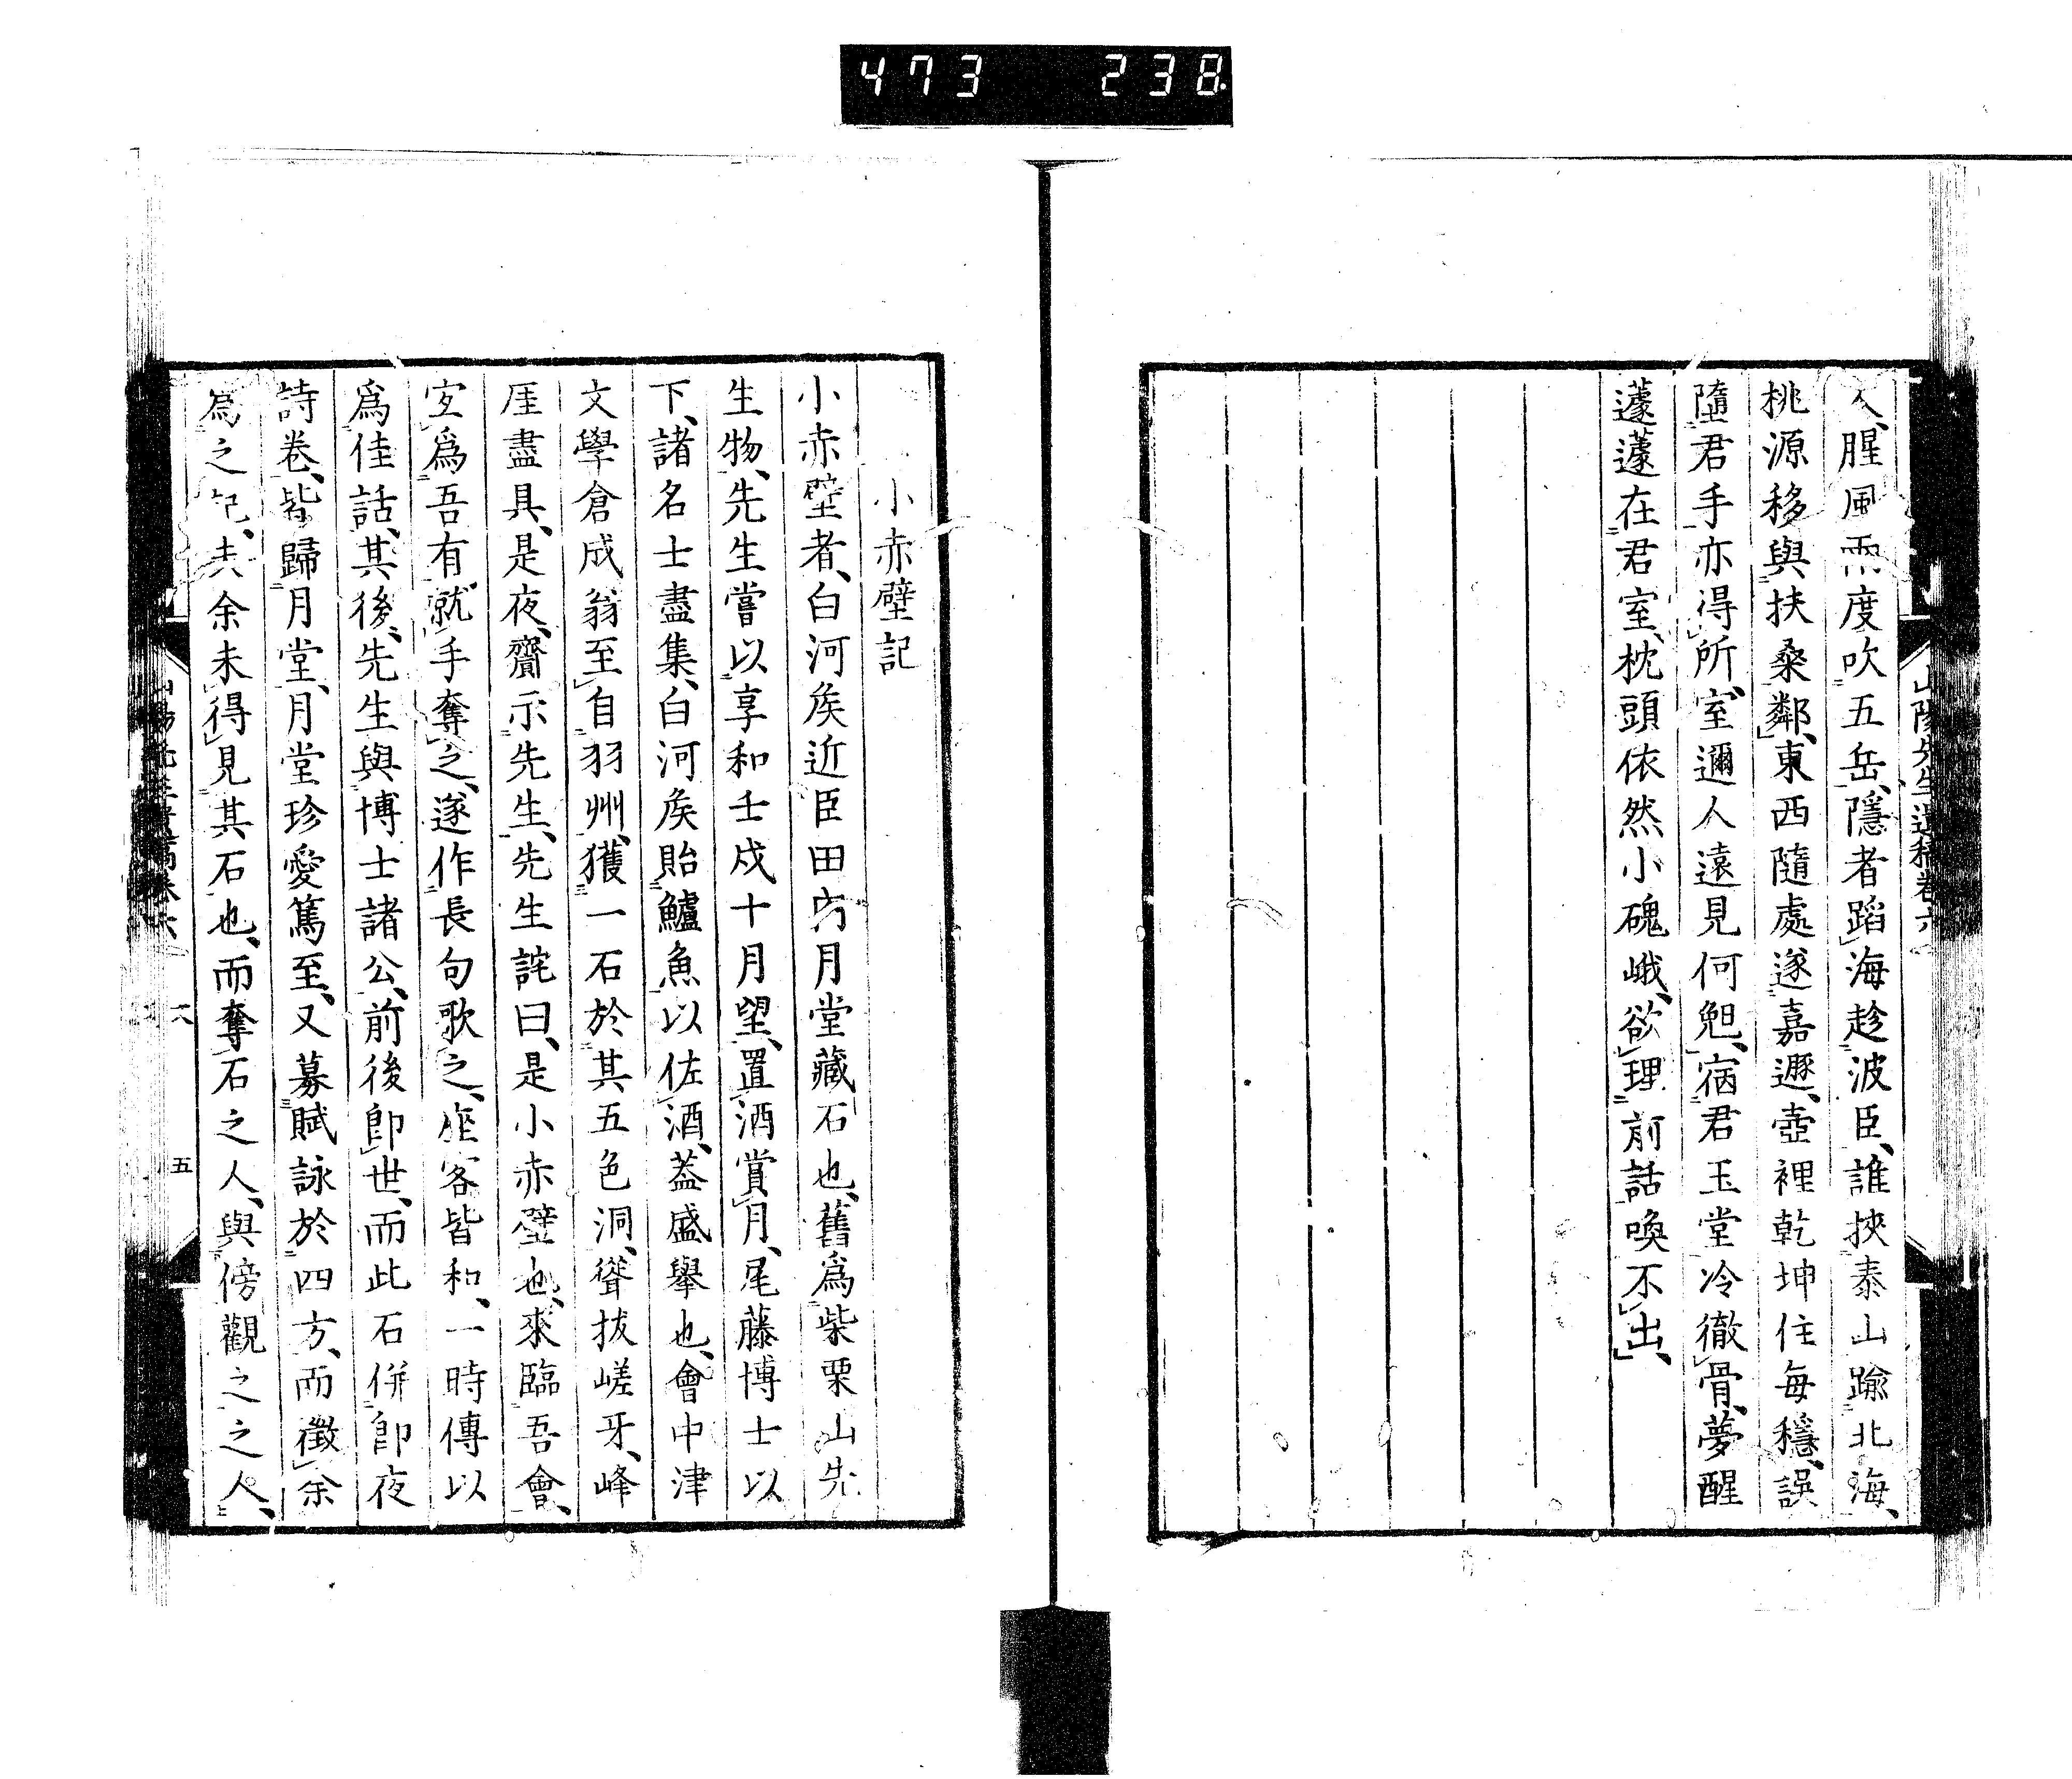 473 238.
山陽先生遺稿卷六
人、腥風兩度吹五岳、隱者蹈海趁波臣、誰挾泰山踰北海、
桃源移與扶桑鄰、東西隨處遂嘉遯、壺裡乾坤住每穩、誤
墮君手亦得所、室邇人遠見何艱、宿君玉堂冷徹骨、夢醒
蘧蘧在君室、枕頭依然小磈峨、欲理前話喚不出、
小赤壁記
小赤壁者、白河矦近臣田内月堂藏石也、舊爲柴栗山先
生物、先生嘗以享和壬戌十月望、置酒賞月、尾藤博士以
下、諸名士盡集、白河矦貽鱸魚以佐酒、蓋盛舉也、會中津
文學倉成翁至自羽州、獲一石於其五色洞、聳拔嵯牙、峰
厓盡具、是夜、齎示先生、先生詫曰、是小赤壁也、來臨吾會、
宜爲吾有、就手奪之、遂作長句歌之、座客皆和、一時傳以
爲佳話、其後、先生與博士諸公、前後卽世、而此石併卽夜
詩卷、皆歸月堂、月堂珍愛篤至、又募賦詠於四方、而徵余
爲之記、夫余未得見其石也、而奪石之人、與傍觀之之人、
山陽先生遺稿卷六
五